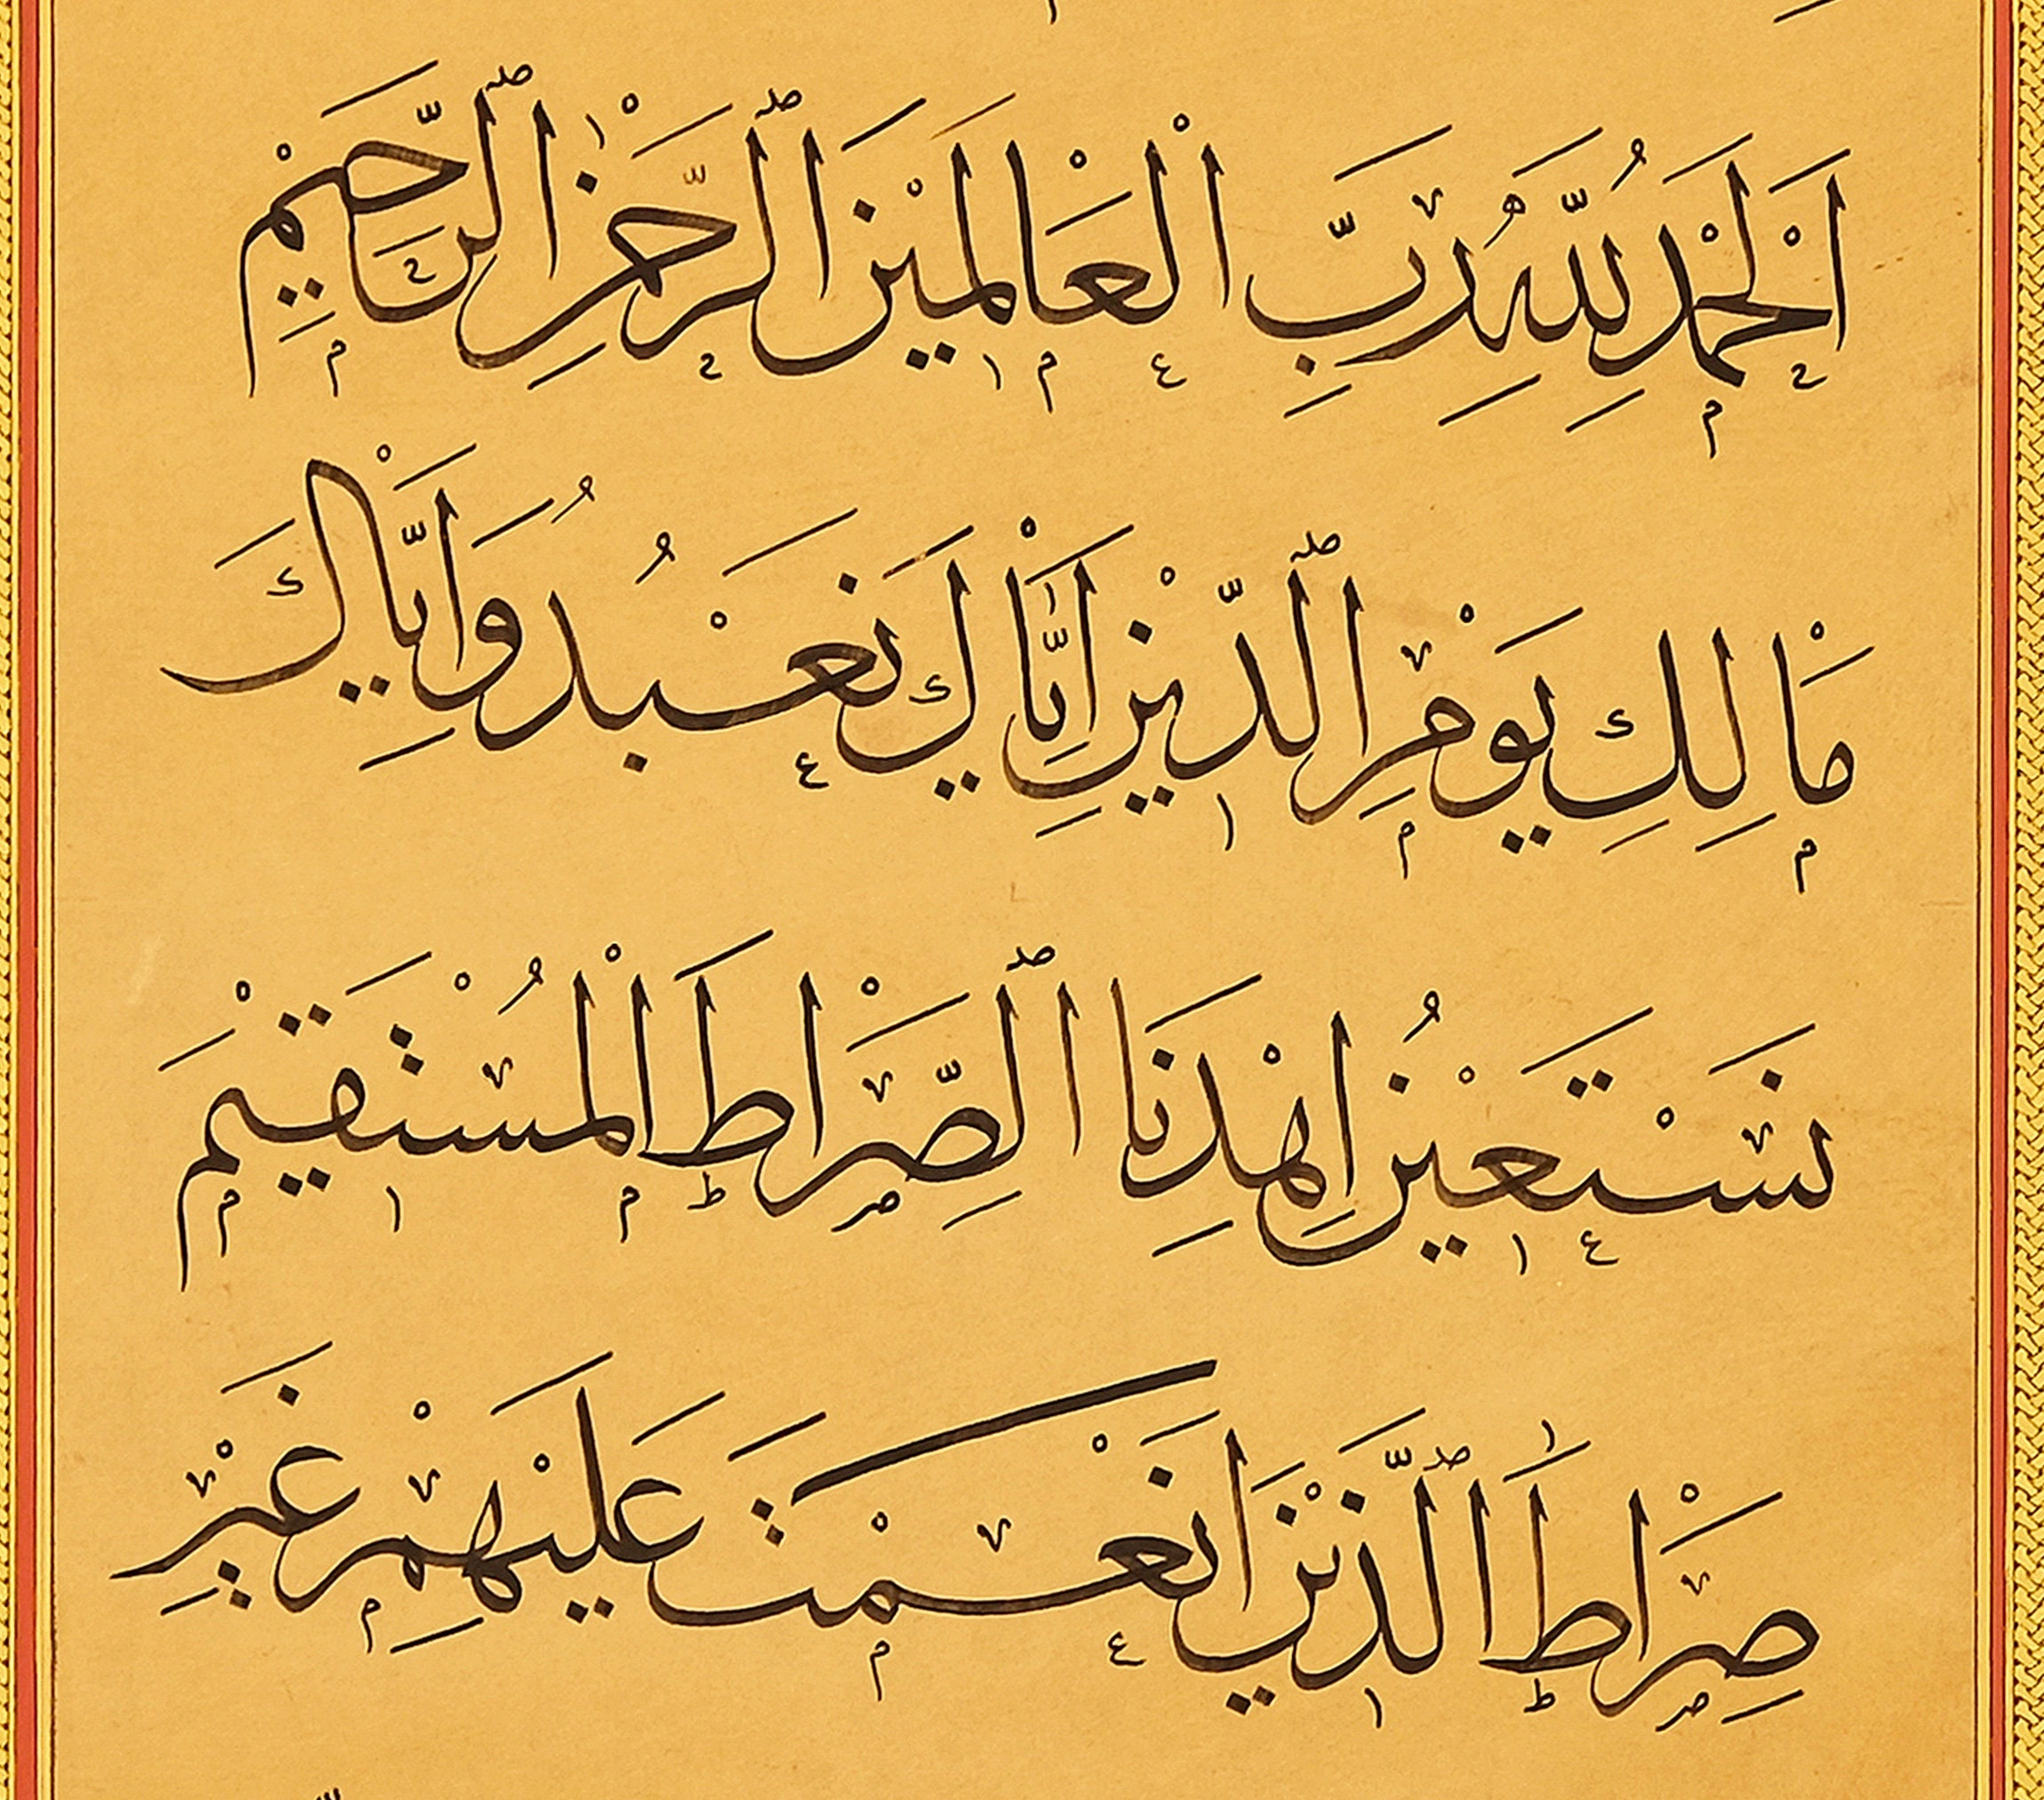 اَلْحَمْدُ لِلّٰهِ رَبِّ الْعَالَمِيْنَ ٱلرَّحْمٰنِ ٱلرَّحِيْمِ
مَالِكِ يَوْمِ ٱلدِّيْنِ اِيَّاكَ نَعْبُدُ وَاِيَّاكَ
نَسْتَعِيْنُ اِهْدِنَا ٱلصِّرَاطَ الْمُسْتَقِيْمَ
صِرَاطَ ٱلَّذِيْنَ اَنْعَمْتَ عَلَيْهِمْ غَيْرِ